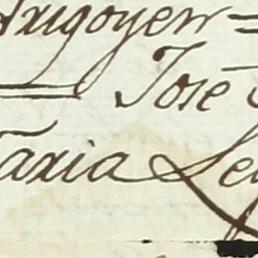 Arigoyen =
= José
Taxia Le